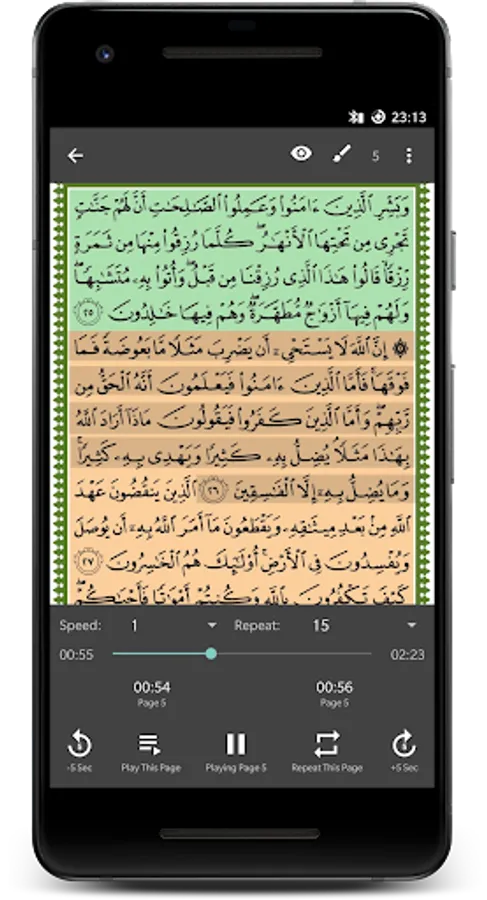 23:13
5
وَبَشِّرِ ٱلَّذِينَ ءَامَنُوا۟ وَعَمِلُوا۟ ٱلصَّـٰلِحَـٰتِ أَنَّ لَهُمْ جَنَّـٰتٍ
تَجْرِى مِن تَحْتِهَا ٱلْأَنْهَـٰرُ ۖ كُلَّمَا رُزِقُوا۟ مِنْهَا مِن ثَمَرَةٍ
رِّزْقًا ۙ قَالُوا۟ هَـٰذَا ٱلَّذِى رُزِقْنَا مِن قَبْلُ ۖ وَأُتُوا۟ بِهِۦ مُتَشَـٰبِهًا ۖ
وَلَهُمْ فِيهَآ أَزْوَٰجٌ مُّطَهَّرَةٌ ۖ وَهُمْ فِيهَا خَـٰلِدُونَ ٢٥
۞ إِنَّ ٱللَّهَ لَا يَسْتَحْىِۦٓ أَن يَضْرِبَ مَثَلًا مَّا بَعُوضَةً فَمَا
فَوْقَهَا ۚ فَأَمَّا ٱلَّذِينَ ءَامَنُوا۟ فَيَعْلَمُونَ أَنَّهُ ٱلْحَقُّ مِن
رَّبِّهِمْ ۖ وَأَمَّا ٱلَّذِينَ كَفَرُوا۟ فَيَقُولُونَ مَاذَآ أَرَادَ ٱللَّهُ
بِهَـٰذَا مَثَلًا ۘ يُضِلُّ بِهِۦ كَثِيرًا وَيَهْدِى بِهِۦ كَثِيرًا ۚ
وَمَا يُضِلُّ بِهِۦٓ إِلَّا ٱلْفَـٰسِقِينَ ٢٦ ٱلَّذِينَ يَنقُضُونَ عَهْدَ
ٱللَّهِ مِنۢ بَعْدِ مِيثَـٰقِهِۦ وَيَقْطَعُونَ مَآ أَمَرَ ٱللَّهُ بِهِۦٓ أَن يُوصَلَ
وَيُفْسِدُونَ فِى ٱلْأَرْضِ ۚ أُو۟لَـٰٓئِكَ هُمُ ٱلْخَـٰسِرُونَ ٢٧
كَيْفَ تَكْفُرُونَ بِٱللَّهِ وَكُنتُمْ أَمْوَٰتًا فَأَحْيَـٰكُمْ ۖ
Speed: 1 Repeat: 15
00:55 02:23
00:54 00:56
Page 5 Page 5
5 5
-5 Sec Play This Page Playing Page 5 Repeat This Page +5 Sec